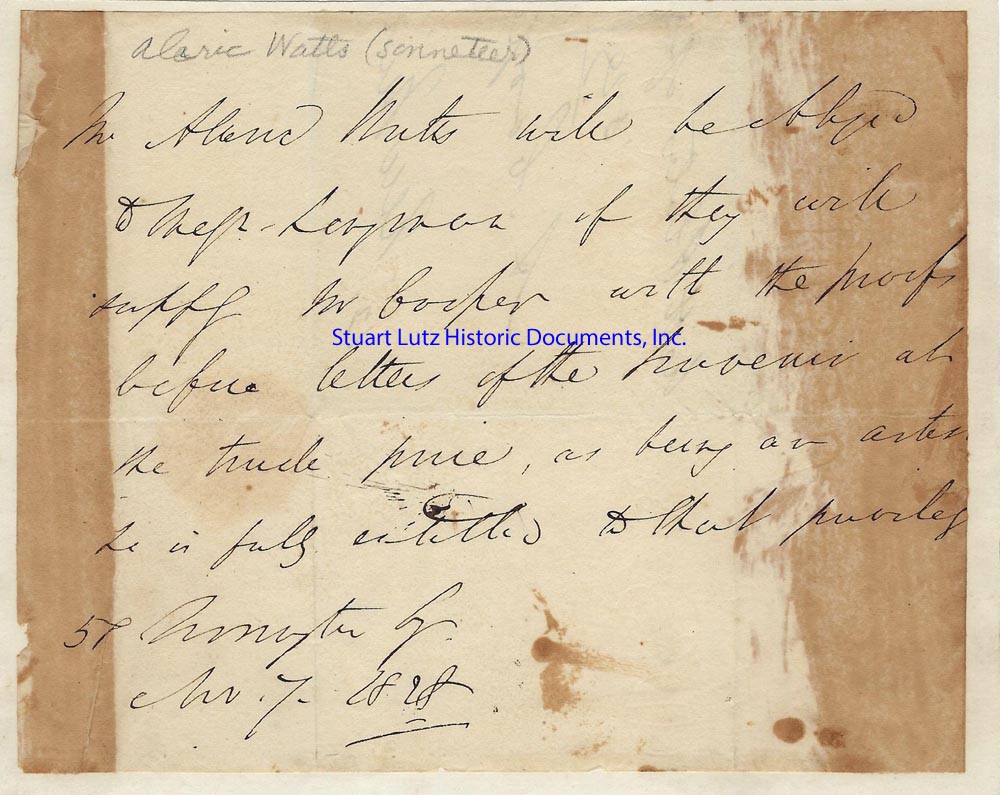 Alaric Watts (sonneteer)
Mr Alaric Watts will be obliged
to Messrs. Longman if they will
supply Mr Cooper with the proofs
Stuart Lutz Historic Documents, Inc.
before letters of the Souvenir at
the trade price, as being an artist
he is fully entitled to that privilege
58 Torrington Sq.
Nov. 7. 1828